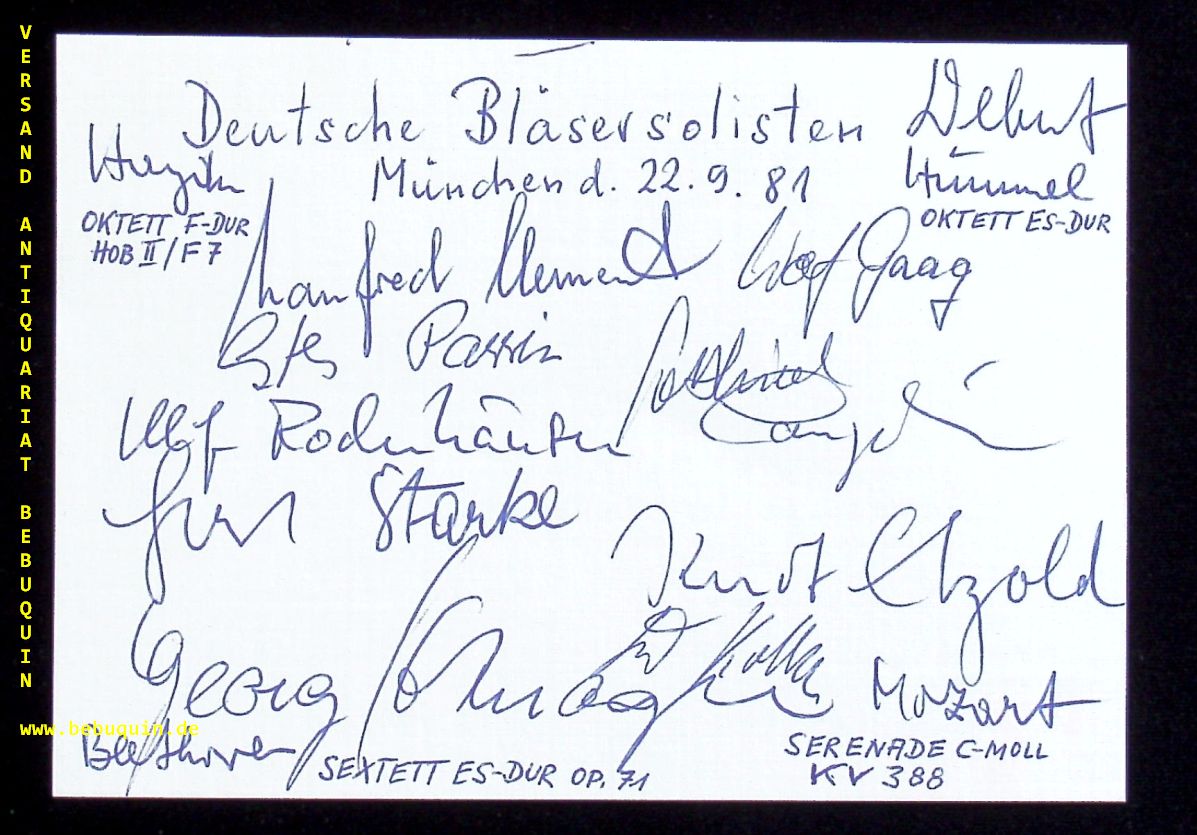 VERSAND ANTIQUARIAT BEBUQUIN
www.bebuquin.de
Deutsche Bläsersolisten
München d. 22.9.81
Debut
Haydn
OKTETT F-DUR
HOB II/F7
Hummel
OKTETT ES-DUR
Manfred Clement
Olaf Gaag
Passin
Gottfried Langenstein
Ulf Rodenhäuser
Starke
Kurt Etzold
Georg
Mozart
SERENADE C-MOLL
KV 388
Beethoven
SEXTETT ES-DUR OP. 71